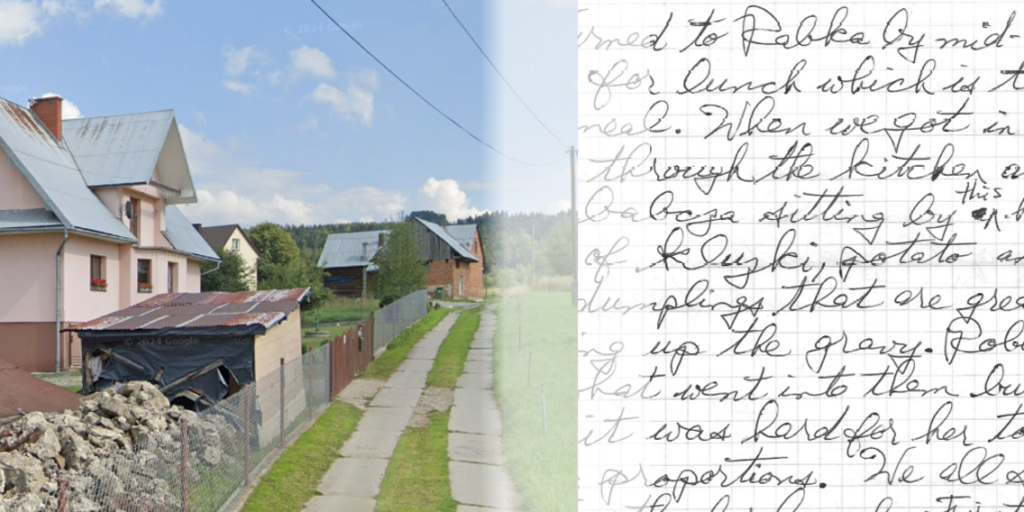 © 2024 Google
© 2024 Google
rned to Rabka by mid-
for lunch which is t
meal. When we got in
through the kitchen a
this
babcza sitting by
of kluzki, potato an
dumplings that are grea
ng up the gravy. Rob
that went into them bu
it was hard for her to
proportions. We all s